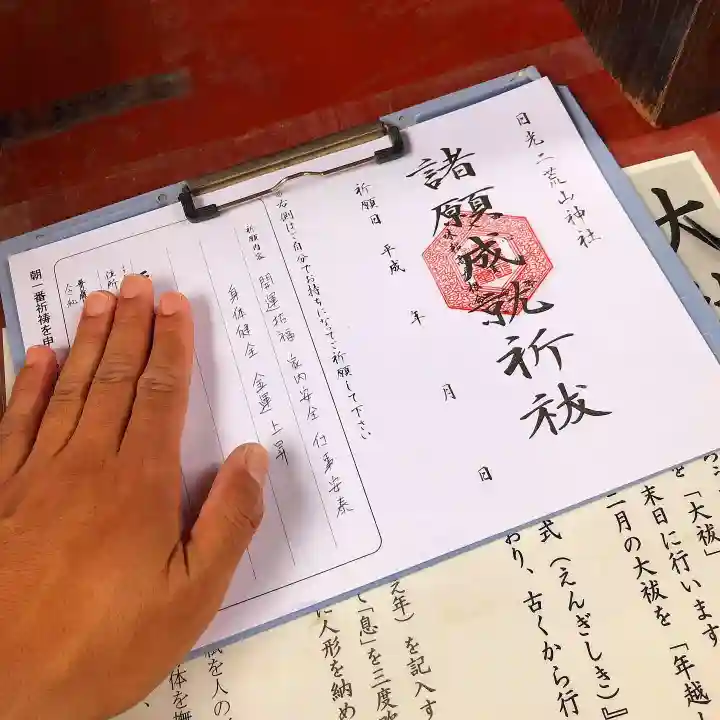 日光二荒山神社
諸願成就祈祓
祈願日 平成 年 月 日
※右側はご自分でお持ちになってご祈願して下さい
祈願内容 開運招福 家内安全 仕事安泰
身体健全 金運上昇
住所
朝一番祈祷を申
大
「大祓」
末日に行います
二月の大祓を「年越し
式(えんぎしき)』
おり、古くから行
え年)を記入す
て「息」を三度
に人形を納め
を人の
体を撫